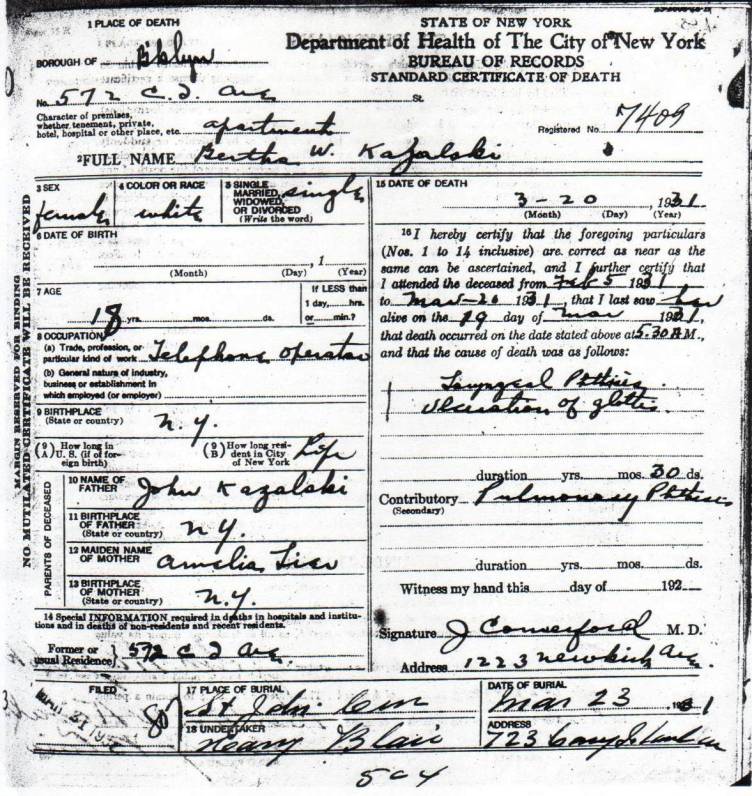 1 PLACE OF DEATH
STATE OF NEW YORK
Department of Health of The City of New York
BUREAU OF RECORDS
STANDARD CERTIFICATE OF DEATH
BOROUGH OF B'klyn
No. 572 C. I. Ave St.
Character of premises,
whether tenement, private,
hotel, hospital or other place, etc. apartment
Registered No. 7409
2 FULL NAME Bertha W. Kazalski
MARGIN RESERVED FOR BINDING
NO MUTILATED CERTIFICATE WILL BE RECEIVED
3 SEX
female
4 COLOR OR RACE
white
5 SINGLE
MARRIED,
WIDOWED,
OR DIVORCED
(Write the word)
single
6 DATE OF BIRTH
, 1
(Month) (Day) (Year)
7 AGE
18 yrs. mos. ds.
If LESS than
1 day, hrs.
or min.?
8 OCCUPATION
(a) Trade, profession, or
particular kind of work Telephone operator
(b) General nature of industry,
business or establishment in
which employed (or employer)
9 BIRTHPLACE
(State or country) N.Y.
(9 A) How long in
U. S. (if of for-
eign birth)
(9 B) How long resi-
dent in City
of New York Life
PARENTS OF DECEASED
10 NAME OF
FATHER John Kazalski
11 BIRTHPLACE
OF FATHER
(State or country) N.Y.
12 MAIDEN NAME
OF MOTHER Amelia
13 BIRTHPLACE
OF MOTHER
(State or country) N.Y.
14 Special INFORMATION required in deaths in hospitals and institu-
tions and in deaths of non-residents and recent residents.
Former or
usual Residence 572 C I Ave.
15 DATE OF DEATH
3-20, 1931
(Month) (Day) (Year)
16 I hereby certify that the foregoing particulars
(Nos. 1 to 14 inclusive) are correct as near as the
same can be ascertained, and I further certify that
I attended the deceased from Feb 5 1931
to Mar-20 1931, that I last saw her
alive on the 19 day of Mar 1931,
that death occurred on the date stated above at 5.30 A M.,
and that the cause of death was as follows:
Laryngeal Phthisis
Ulceration of glottis
duration yrs. mos. 30 ds.
Contributory Pulmonary Phthisis
(Secondary)
duration yrs. mos. ds.
Witness my hand this day of 192
Signature J Comerford M. D.
Address 1223 Newkirk Ave.
FILED
17 PLACE OF BURIAL
St John Cem
DATE OF BURIAL
Mar 23 1931
18 UNDERTAKER
Harry Blair
ADDRESS
723
504